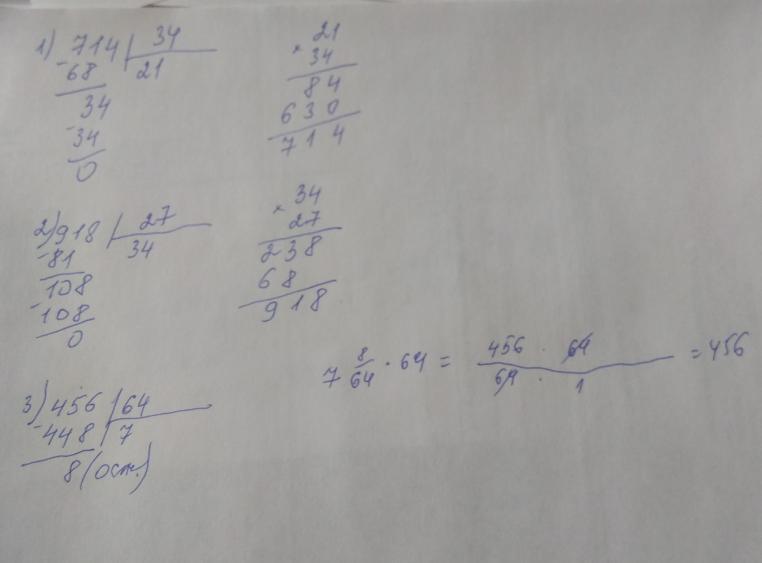 1) 714 | 34
- 68   21
34
- 34
0
21
× 34
84
630
714
2) 918 | 27
- 81   34
108
- 108
0
34
× 27
238
68
918
3) 456 | 64
- 448 | 7
8 (ост.)
7 8/64 · 64 = 456 · 64 / 64 · 1 = 456